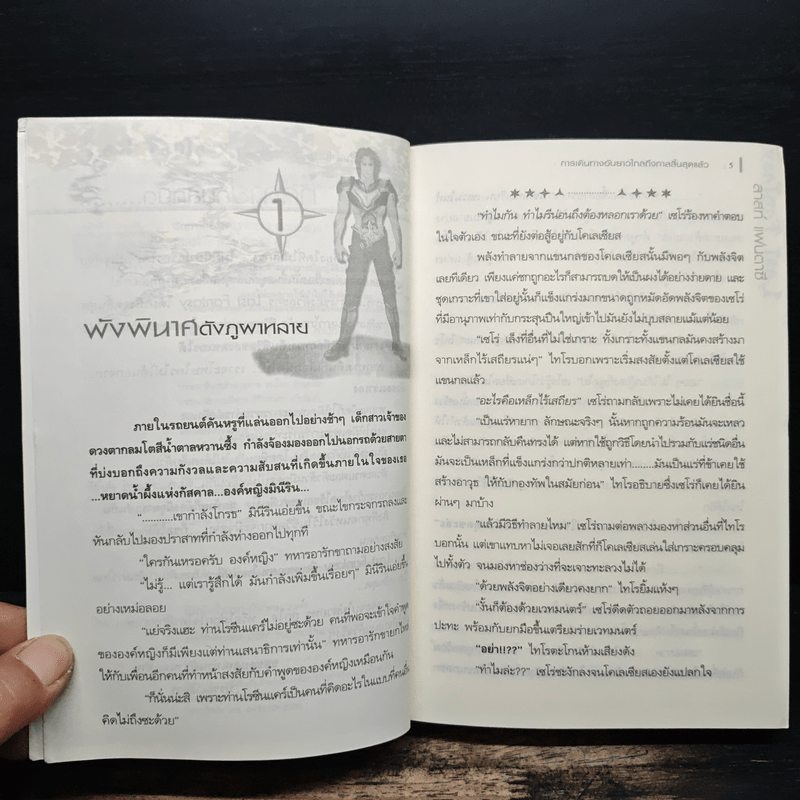 1
พังพินาศดังภูผาทลาย
ภายในรถยนต์คันหรูที่แล่นออกไปอย่างช้าๆ เด็กสาวเจ้าของ
ดวงตากลมโตสีน้ำตาลหวานซึ้ง กำลังจ้องมองออกไปนอกรถด้วยสายตา
ที่บ่งบอกถึงความกังวลและความสับสนที่เกิดขึ้นภายในใจของเธอ
...หยาดน้ำผึ้งแห่งกัสคาล...องค์หญิงมินีริน...
"...........เขากำลังโกรธ" มินีรินเอ่ยขึ้น ขณะไขกระจกรถลงและ
หันกลับไปมองปราสาทที่กำลังห่างออกไปทุกที
"ใครกันเหรอครับ องค์หญิง" ทหารอารักขาถามอย่างสงสัย
"ไม่รู้... แต่เรารู้สึกได้ มันกำลังเพิ่มขึ้นเรื่อยๆ" มินีรินเอ่ยขึ้น
อย่างเหม่อลอย
"แย่จริงแฮะ ท่านโรซีนแคร์ไม่อยู่ซะด้วย คนที่พอจะเข้าใจคำพูด
ขององค์หญิงก็มีเพียงแต่ท่านเสนาธิการเท่านั้น" ทหารอารักขายกไหล่
ให้กับเพื่อนอีกคนที่ทำหน้าสงสัยกับคำพูดขององค์หญิงเหมือนกัน
"ก็นั่นน่ะสิ เพราะท่านโรซีนแคร์เป็นคนที่คิดอะไรในแบบที่คนอื่น
คิดไม่ถึงซะด้วย"
การเดินทางอันยาวไกลถึงกาลสิ้นสุดแล้ว 5
ลาสท์ แฟนตาซี
"ทำไมกัน ทำไมรีน่อนถึงต้องหลอกเราด้วย" เซโร่ร้องหาคำตอบ
ในใจตัวเอง ขณะที่ยังต่อสู้อยู่กับโคเลเซียส
พลังทำลายจากแขนกลของโคเลเซียสนั้นมีพอๆ กับพลังจิต
เลยทีเดียว เพียงแค่ชกถูกอะไรก็สามารถบดให้เป็นผงได้อย่างง่ายดาย และ
ชุดเกราะที่เขาใส่อยู่นั้นก็แข็งแกร่งมากขนาดถูกหมัดอัดพลังจิตของเซโร่
ที่มีอานุภาพเท่ากับกระสุนปืนใหญ่เข้าไปมันยังไม่บุบสลายแม้แต่น้อย
"เซโร่ เล็งที่อื่นที่ไม่ใช่เกราะ ทั้งเกราะทั้งแขนกลมันคงสร้างมา
จากเหล็กไร้เสถียรแน่ๆ" ไทโรบอกเพราะเริ่มสงสัยตั้งแต่โคเลเซียสใช้
แขนกลแล้ว
"อะไรคือเหล็กไร้เสถียร" เซโร่ถามกลับเพราะไม่เคยได้ยินชื่อนี้
"เป็นแร่หายาก ลักษณะจริงๆ นั้นหากถูกความร้อนมันจะเหลว
และไม่สามารถกลับคืนทรงได้ แต่หากใช้ถูกวิธีโดยนำไปรวมกับแร่ชนิดอื่น
มันจะเป็นเหล็กที่แข็งแกร่งกว่าปกติหลายเท่า.......มันเป็นแร่ที่ข้าเคยใช้
สร้างอาวุธ ให้กับกองทัพในสมัยก่อน" ไทโรอธิบายซึ่งเซโร่ก็เคยได้ยิน
ผ่านๆ มาบ้าง
"แล้วมีวิธีทำลายไหม" เซโร่ถามต่อพลางมองหาส่วนอื่นที่ไทโร
บอกนั้น แต่เขาแทบหาไม่เจอเลยสักที่ก็โคเลเซียสเล่นใส่เกราะครอบคลุม
ไปทั้งตัว จนมองหาช่องว่างที่จะเจาะทะลวงไม่ได้
"ด้วยพลังจิตอย่างเดียวคงยาก" ไทโรยิ้มแห้งๆ
"งั้นก็ต้องด้วยเวทมนตร์" เซโร่ดีดตัวถอยออกมาหลังจากการ
ปะทะ พร้อมกับยกมือขึ้นเตรียมร่ายเวทมนตร์
"อย่า!!??" ไทโรตะโกนห้ามเสียงดัง
"ทำไมล่ะ??" เซโร่ชะงักลงจนโคเลเซียสเองยังแปลกใจ